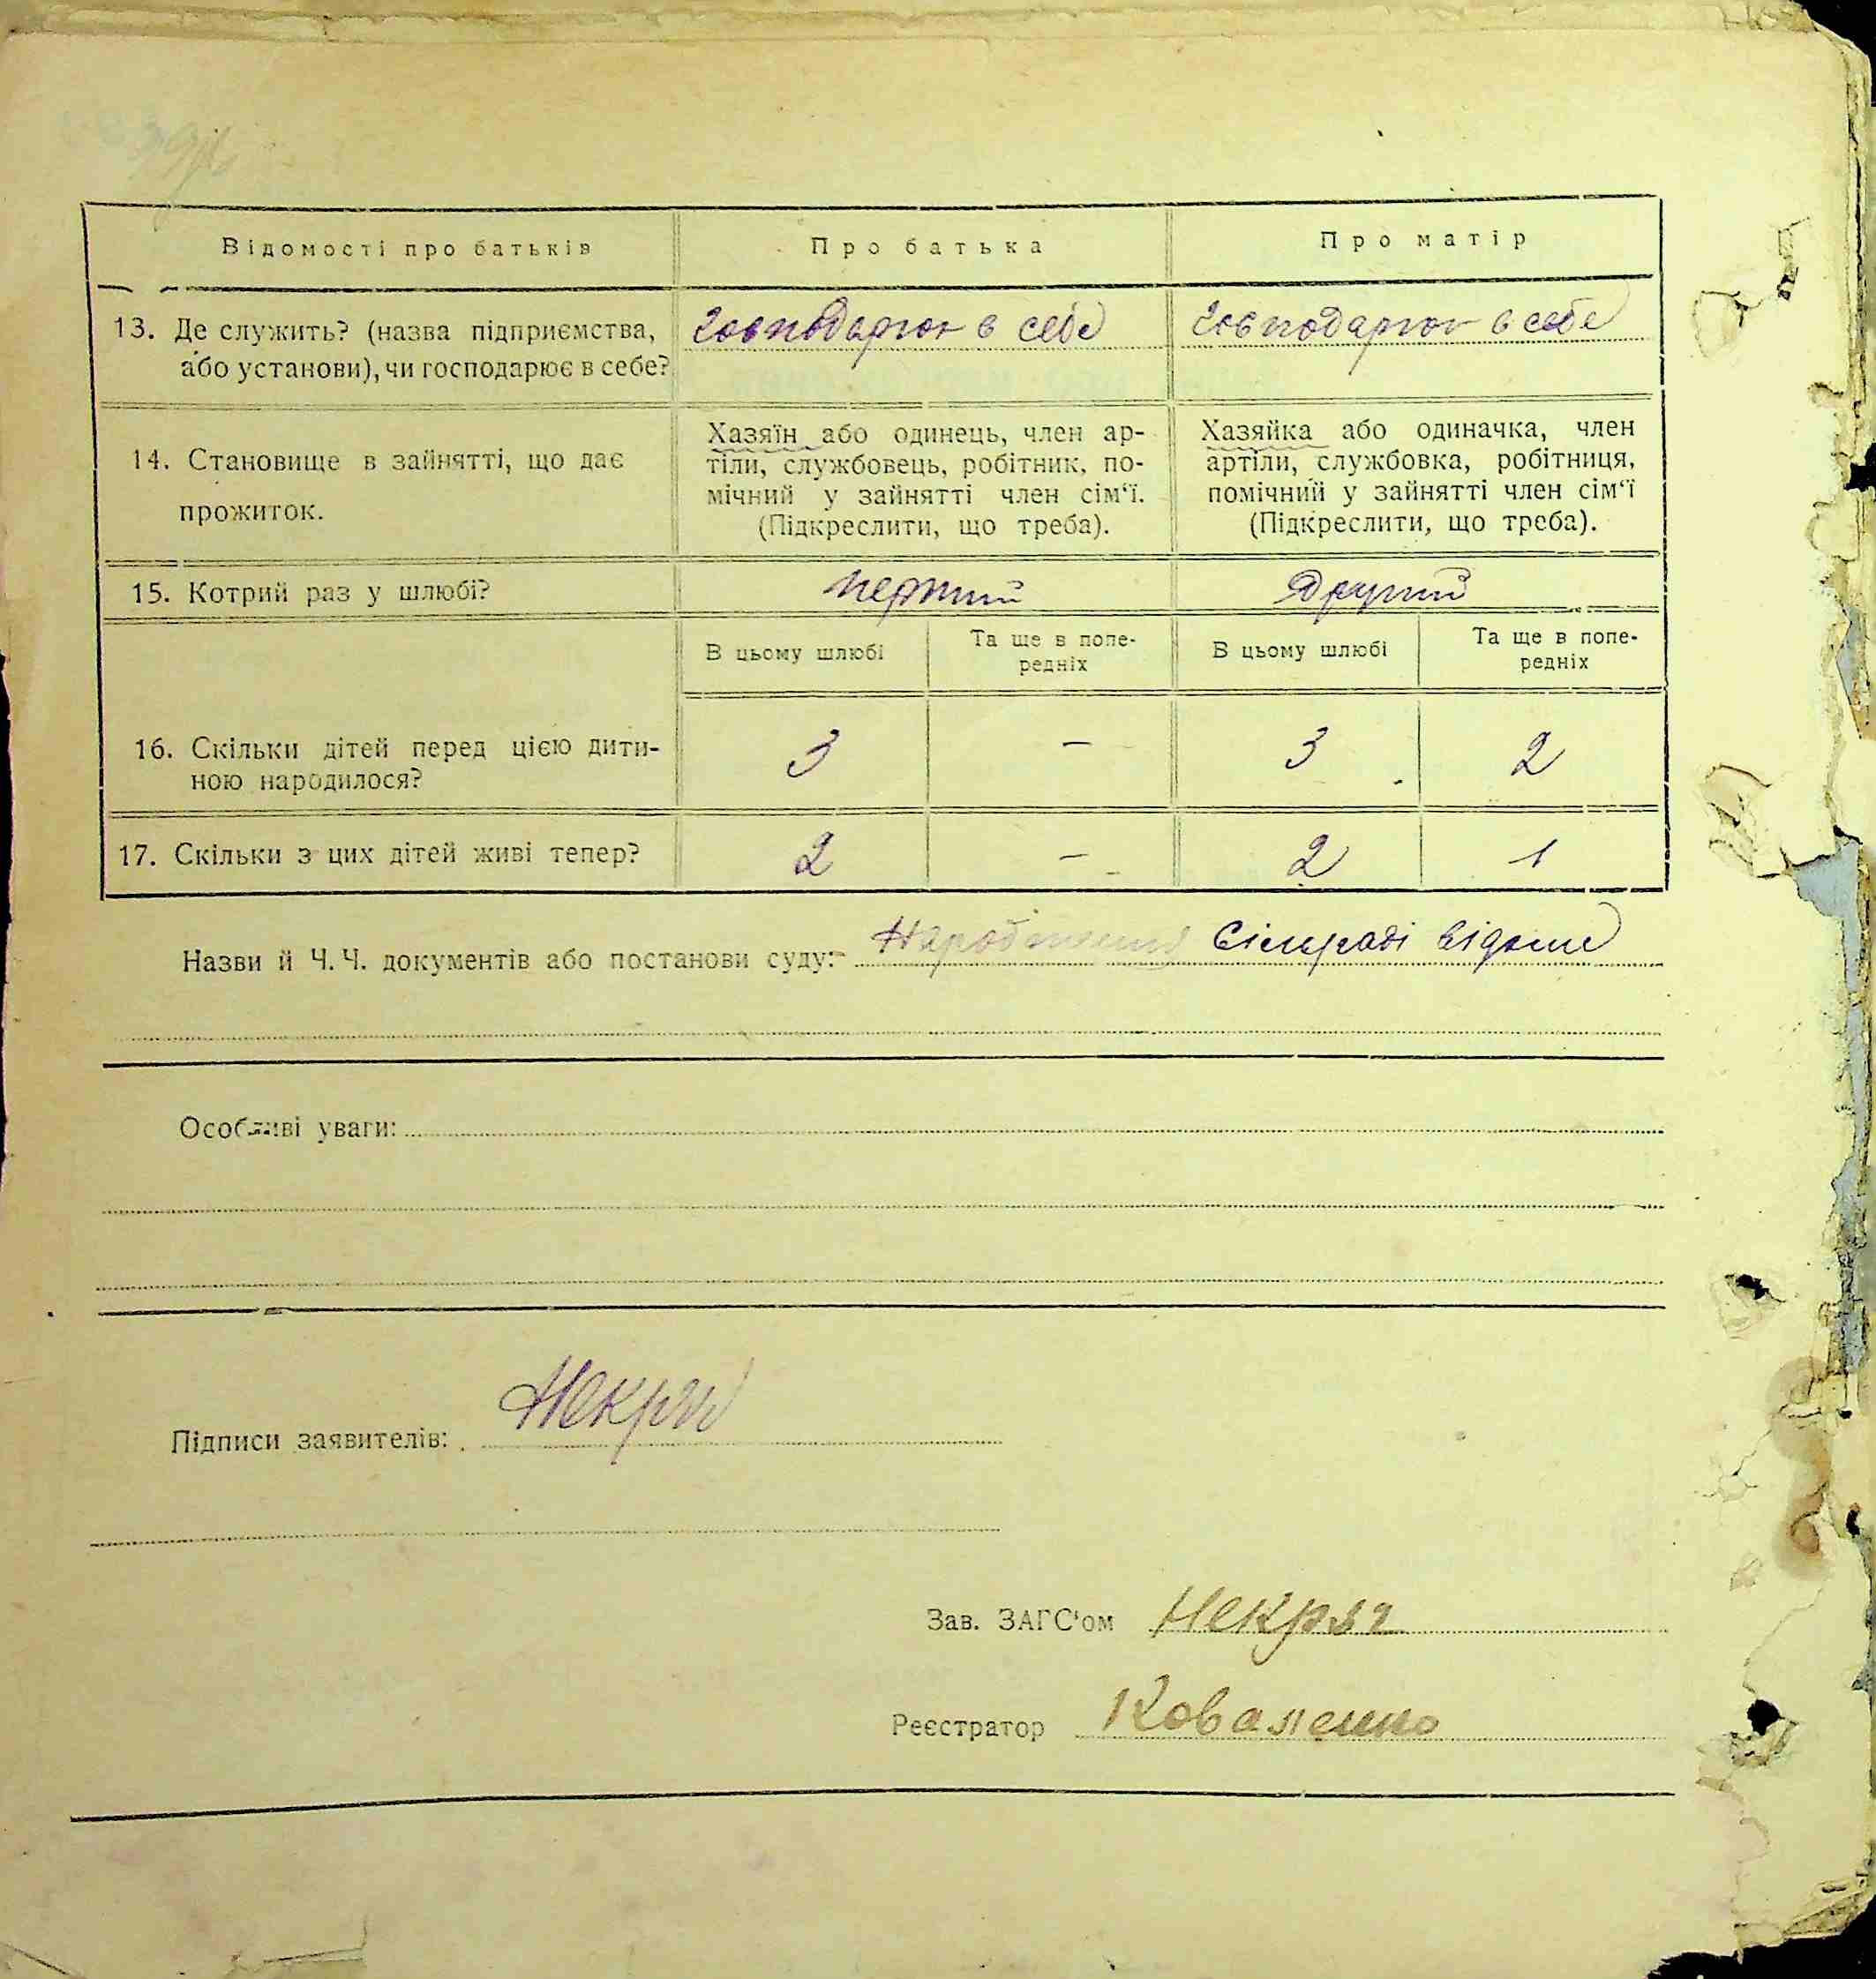 Відомості про батьків Про батька Про матір
13. Де служить? (назва підприємства, або установи), чи господарює в себе?
господарює в себе
господарює в себе
14. Становище в зайнятті, що дає
прожиток.
Хазяїн або одинець, член ар-
тіли, службовець, робітник, по-
мічний у зайнятті член сім‘ї.
(Підкреслити, що треба).
Хазяйка або одиначка, член
артіли, службовка, робітниця,
помічний у зайнятті член сім‘ї
(Підкреслити, що треба).
15. Котрий раз у шлюбі? перший другий
В цьому шлюбі
Та ще в попе-
редніх
В цьому шлюбі
Та ще в попе-
редніх
16. Скільки дітей перед цією дити-
ною народилося?
3 – 3 2
17. Скільки з цих дітей живі тепер? 2 – 2 1
Назви й Ч.Ч. документів або постанови суду: Народження сільраді відоме
Особливі уваги:
Підписи заявителів:
Зав. ЗАГС‘ом
Реєстратор Коваленко